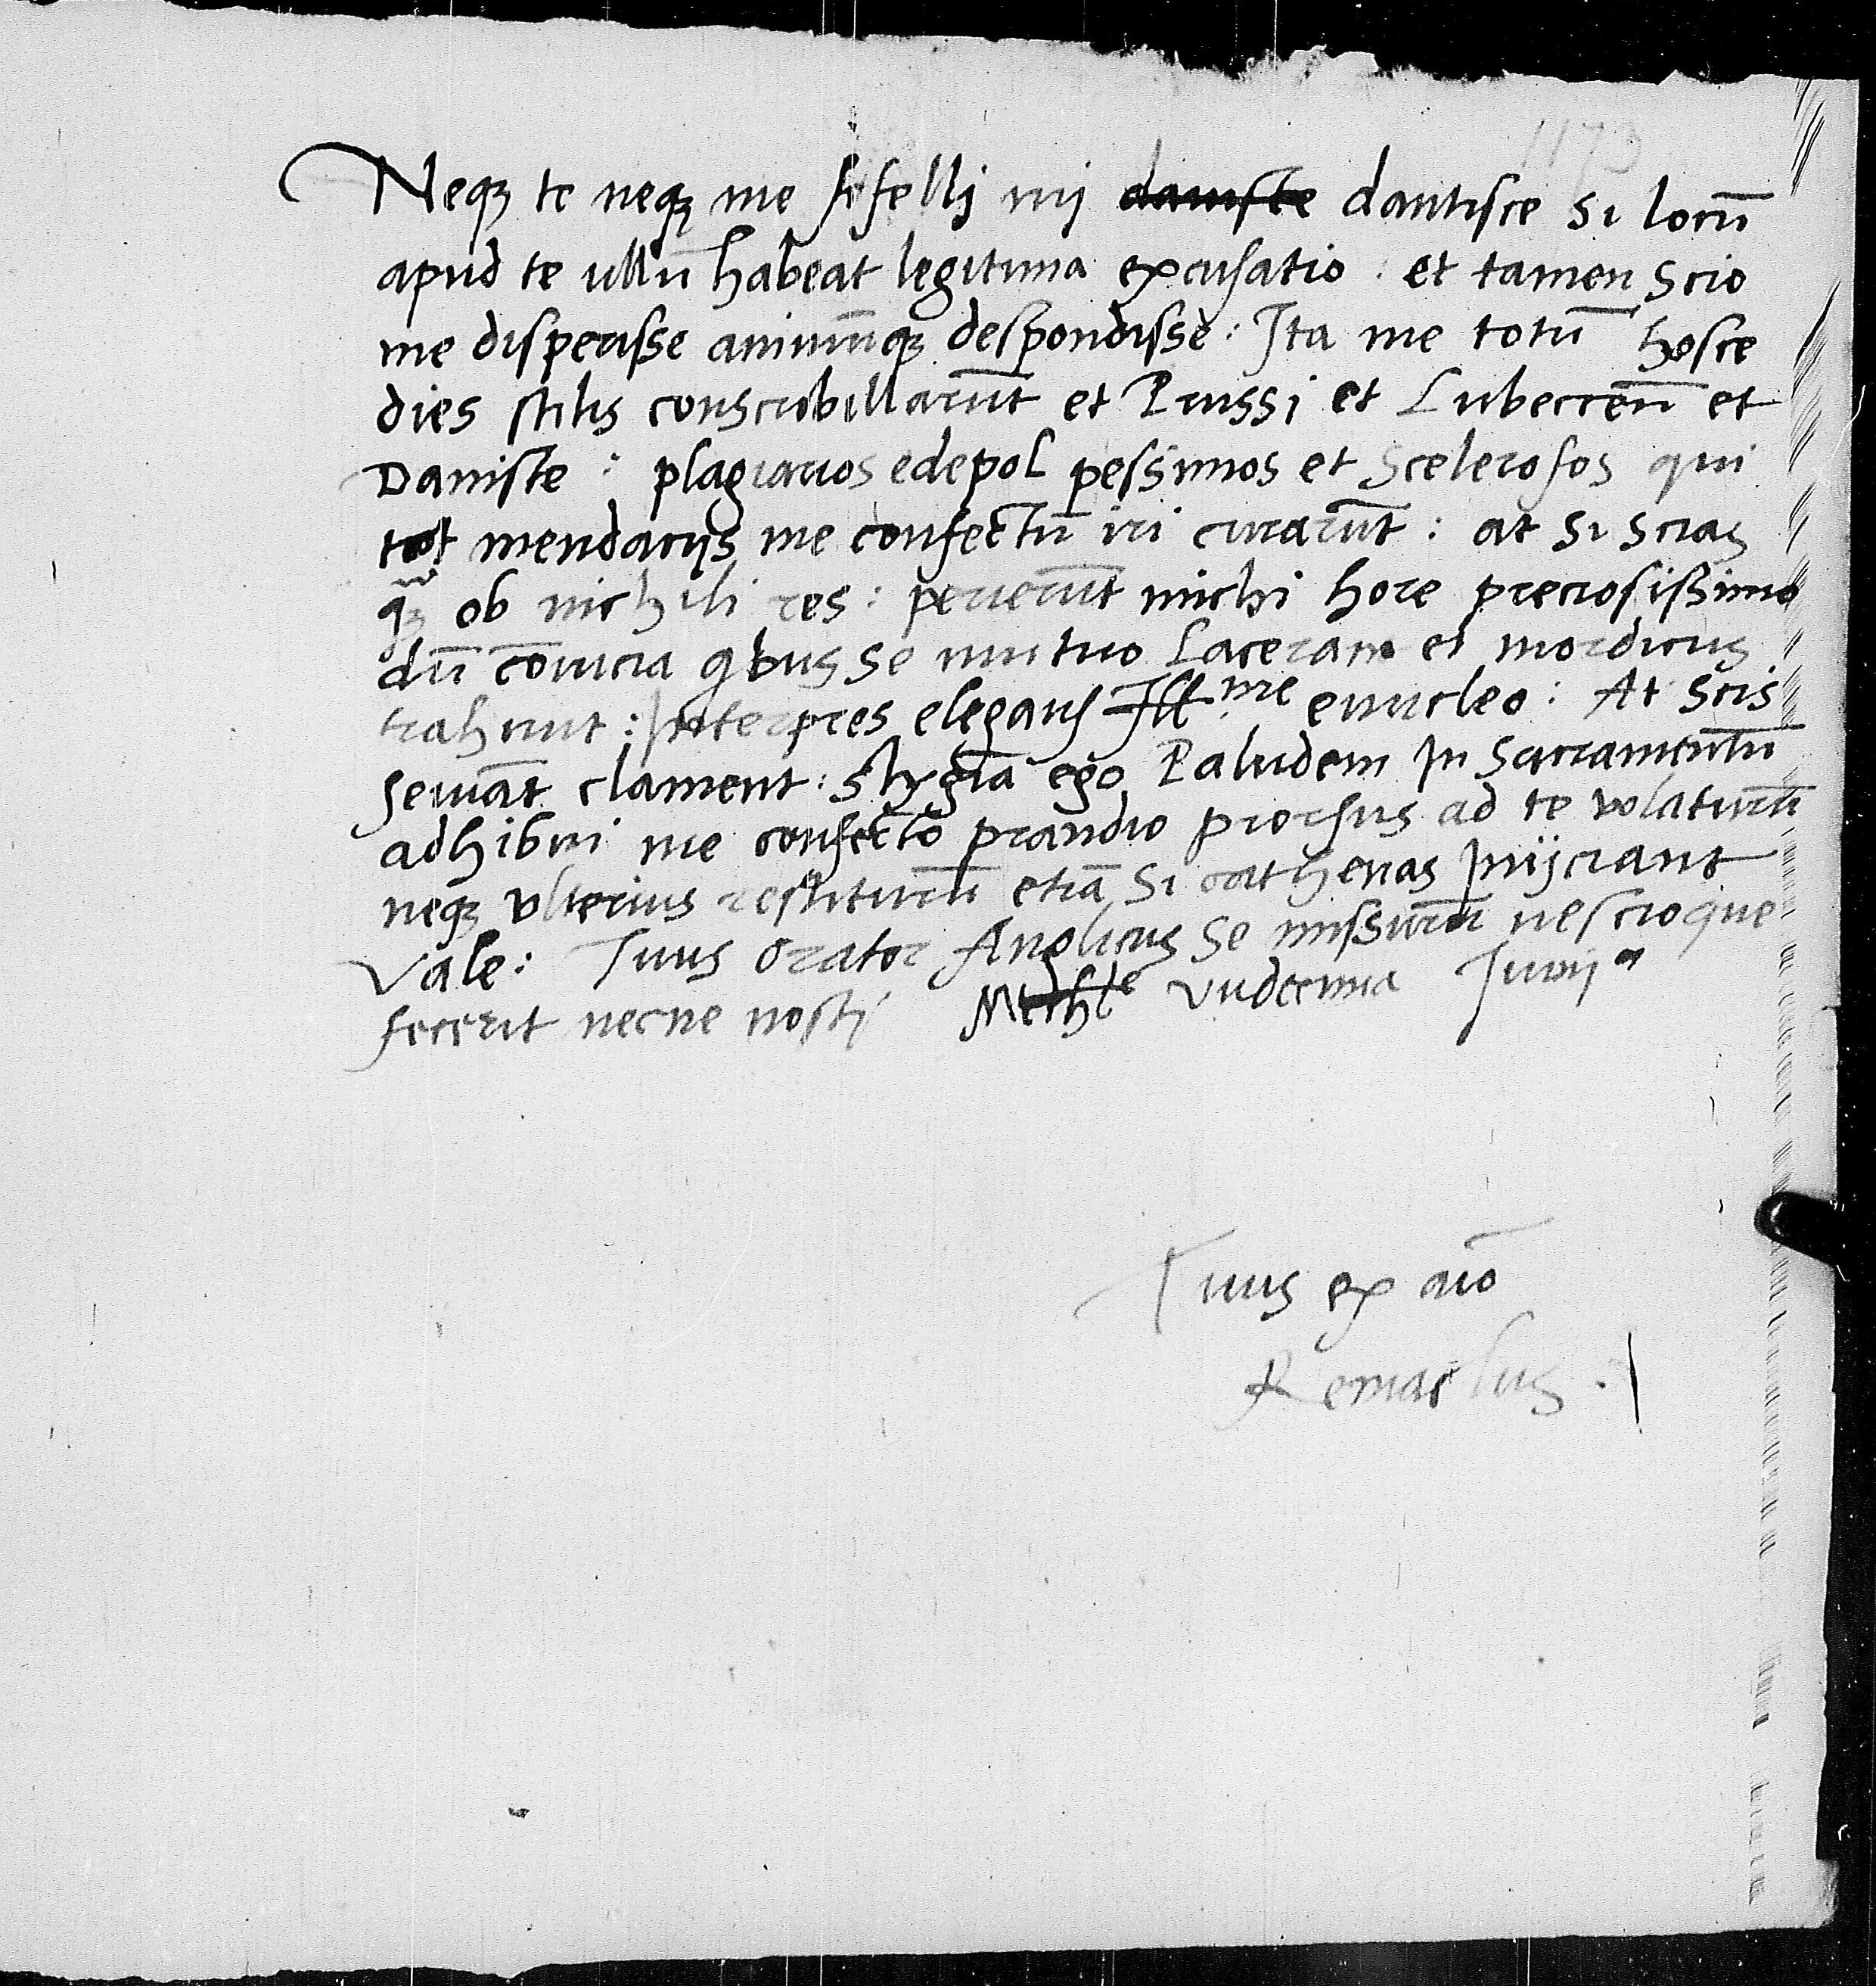 Neqꝫ te neqꝫ me fefellj mj daniste dantisce si locū
apud te ullū habeat legitima excusatio : et tamen scio
me disperisse animūqꝫ despondisse : Ita me totū hosce
dies stilis conscribillarūt et Prussi et Lubeccen̄ et
Daniste : plagiarios edepol pessimos et scelerosos qui
tot mendacijs me confectū iri curarūt : at si scias
qꝫ ob nichili res : perierūt michi hore preciosissime
dū cōuicia qbus se mutuo Lacerant et mordicus
trahunt : Interpres elegans Ill me enucleo : At scis
seruāt clament : stygiā ego Paludem In sacramentū
adhibui me confecto prandio prorsus ad te volaturū
neqꝫ vlterius restiturū etiā si cathenas Inijciant
Vale : Tuus orator Anglicus se missurū nescio que
fecerit necne nostj Mechle vndecima Junij
Tuus ex aīo
Remaclus .